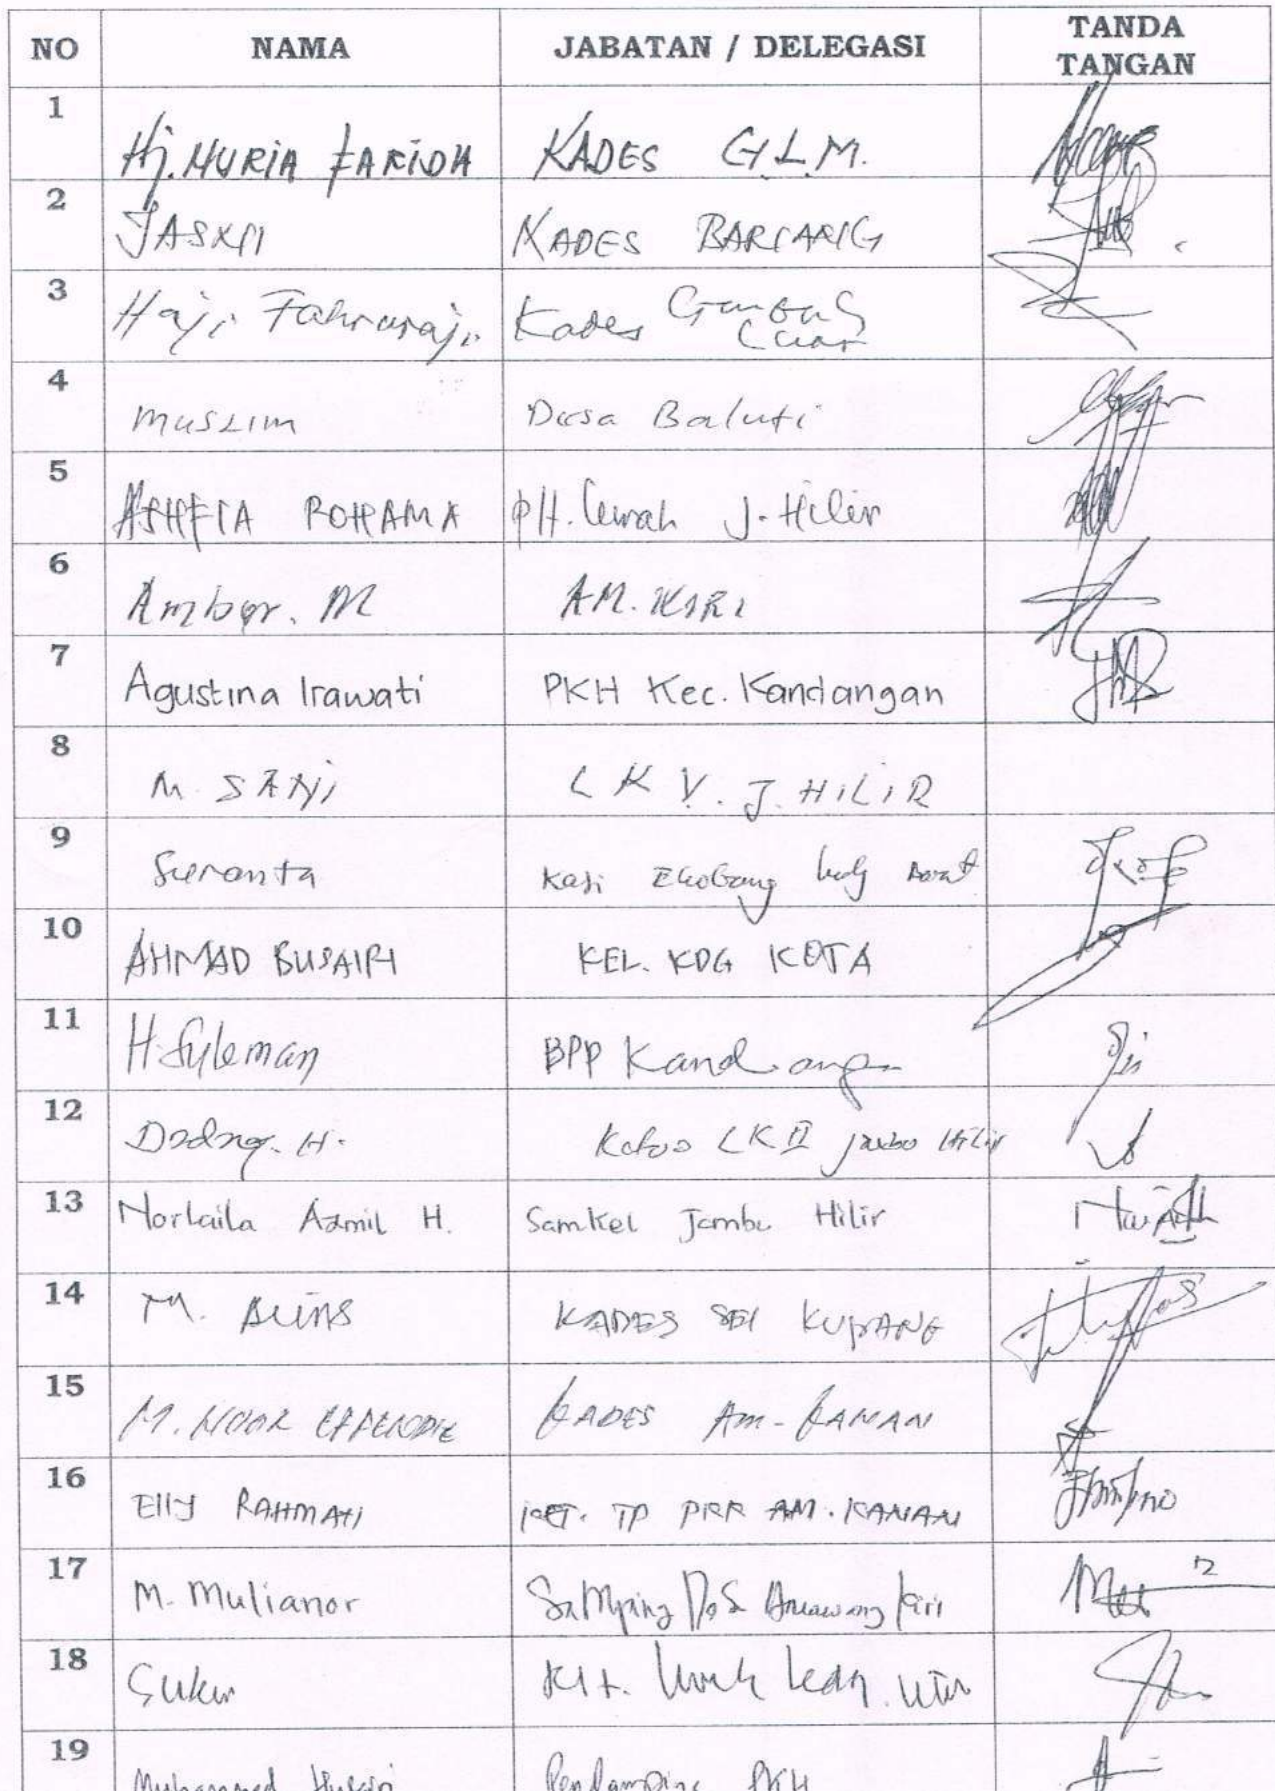 NO NAMA JABATAN / DELEGASI TANDA
TANGAN
1 Hj. NURIA FARIDA KADES G.L.M.
2 KADES
3 Haji Fahruraji Kades Gambah
Luar
4 MUSLIM Desa Baluti
5 ROHAMA J. Hilir
6 Ambar. M AM. KIRI
7 Agustina Irawati PKH Kec. Kandangan
8 M. SANJI LK V. J. HILIR
9 Suranta Kasi Ekobang Barat
10 AHMAD BUSAIRI KEL. KDG KOTA
11 H. Suleman BPP Kandangan
12 H. LK II Jambu Hilir
13 Norlaila Azmil H. Samkel Jambu Hilir
14 M. KADES SEI KUPANG
15 M. NOOR EFFENDIE KADES AM-KANAN
16 Elly RAHMATI KET. TP PKK AM. KANAN
17 M. Mulianor Amawang Kiri
18 Sukur Kdn. Utr
19 Muhammad Husaini Pendamping PKH